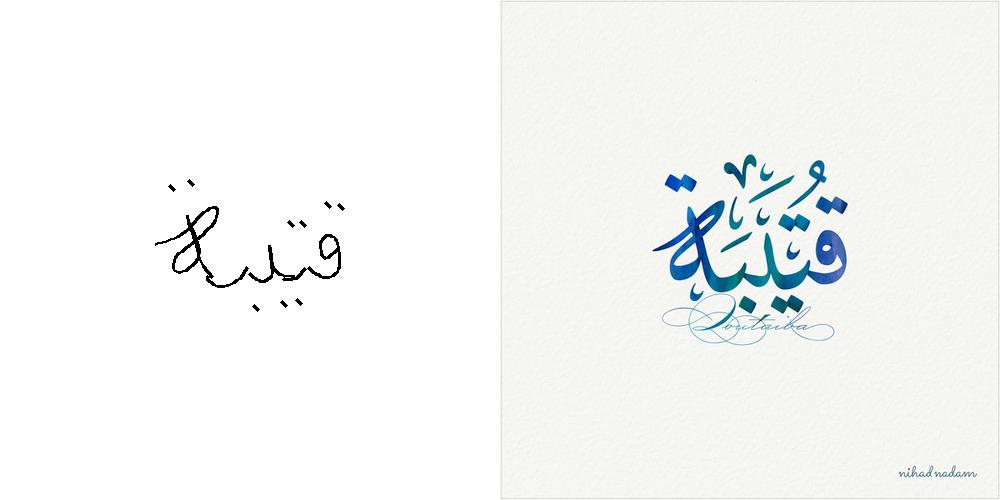 قتيبة
قُتَيْبَة
Qoutaiba
nihad nadam